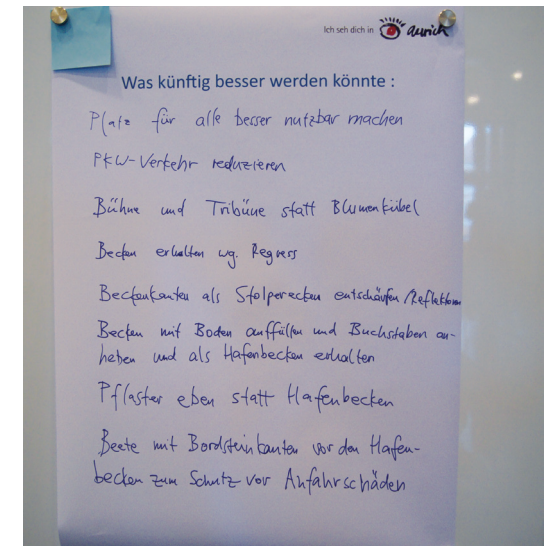 Ich seh dich in aurich
Was künftig besser werden könnte :
Platz für alle besser nutzbar machen
PKW-Verkehr reduzieren
Bühne und Tribüne statt Blumenkübel
Becken erhalten wg. Regress
Beckenkanten als Stolperecken entschärfen/Reflektoren
Becken mit Boden auffüllen und Buchstaben an-
heben und als Hafenbecken erhalten
Pflaster eben statt Hafenbecken
Beete mit Bordsteinkanten vor den Hafen-
becken zum Schutz vor Anfahrschäden